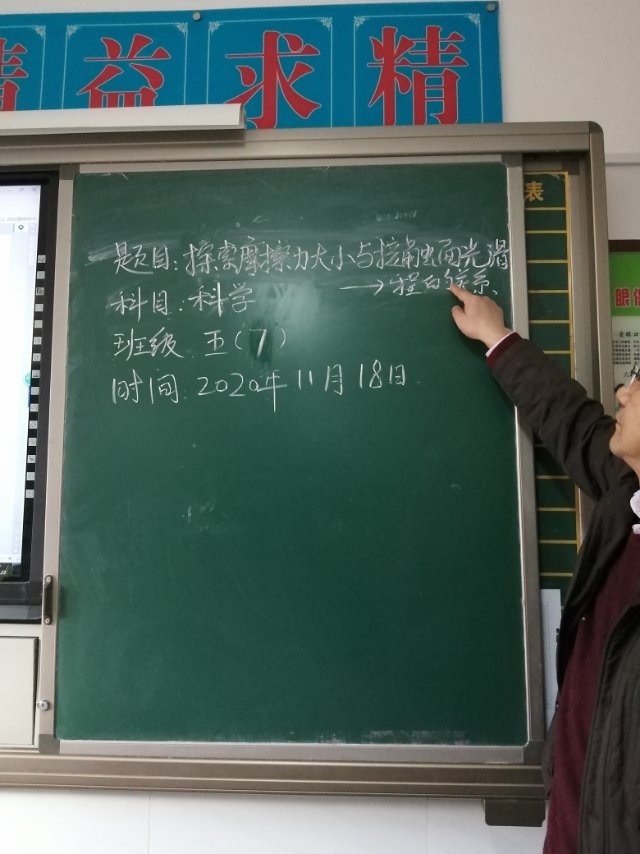 精益求精
表
题目:探索摩擦力大小与接触面光滑
→程白的关系、
科目:科学
班级 五(7)
时间:2020年11月18日
眼保